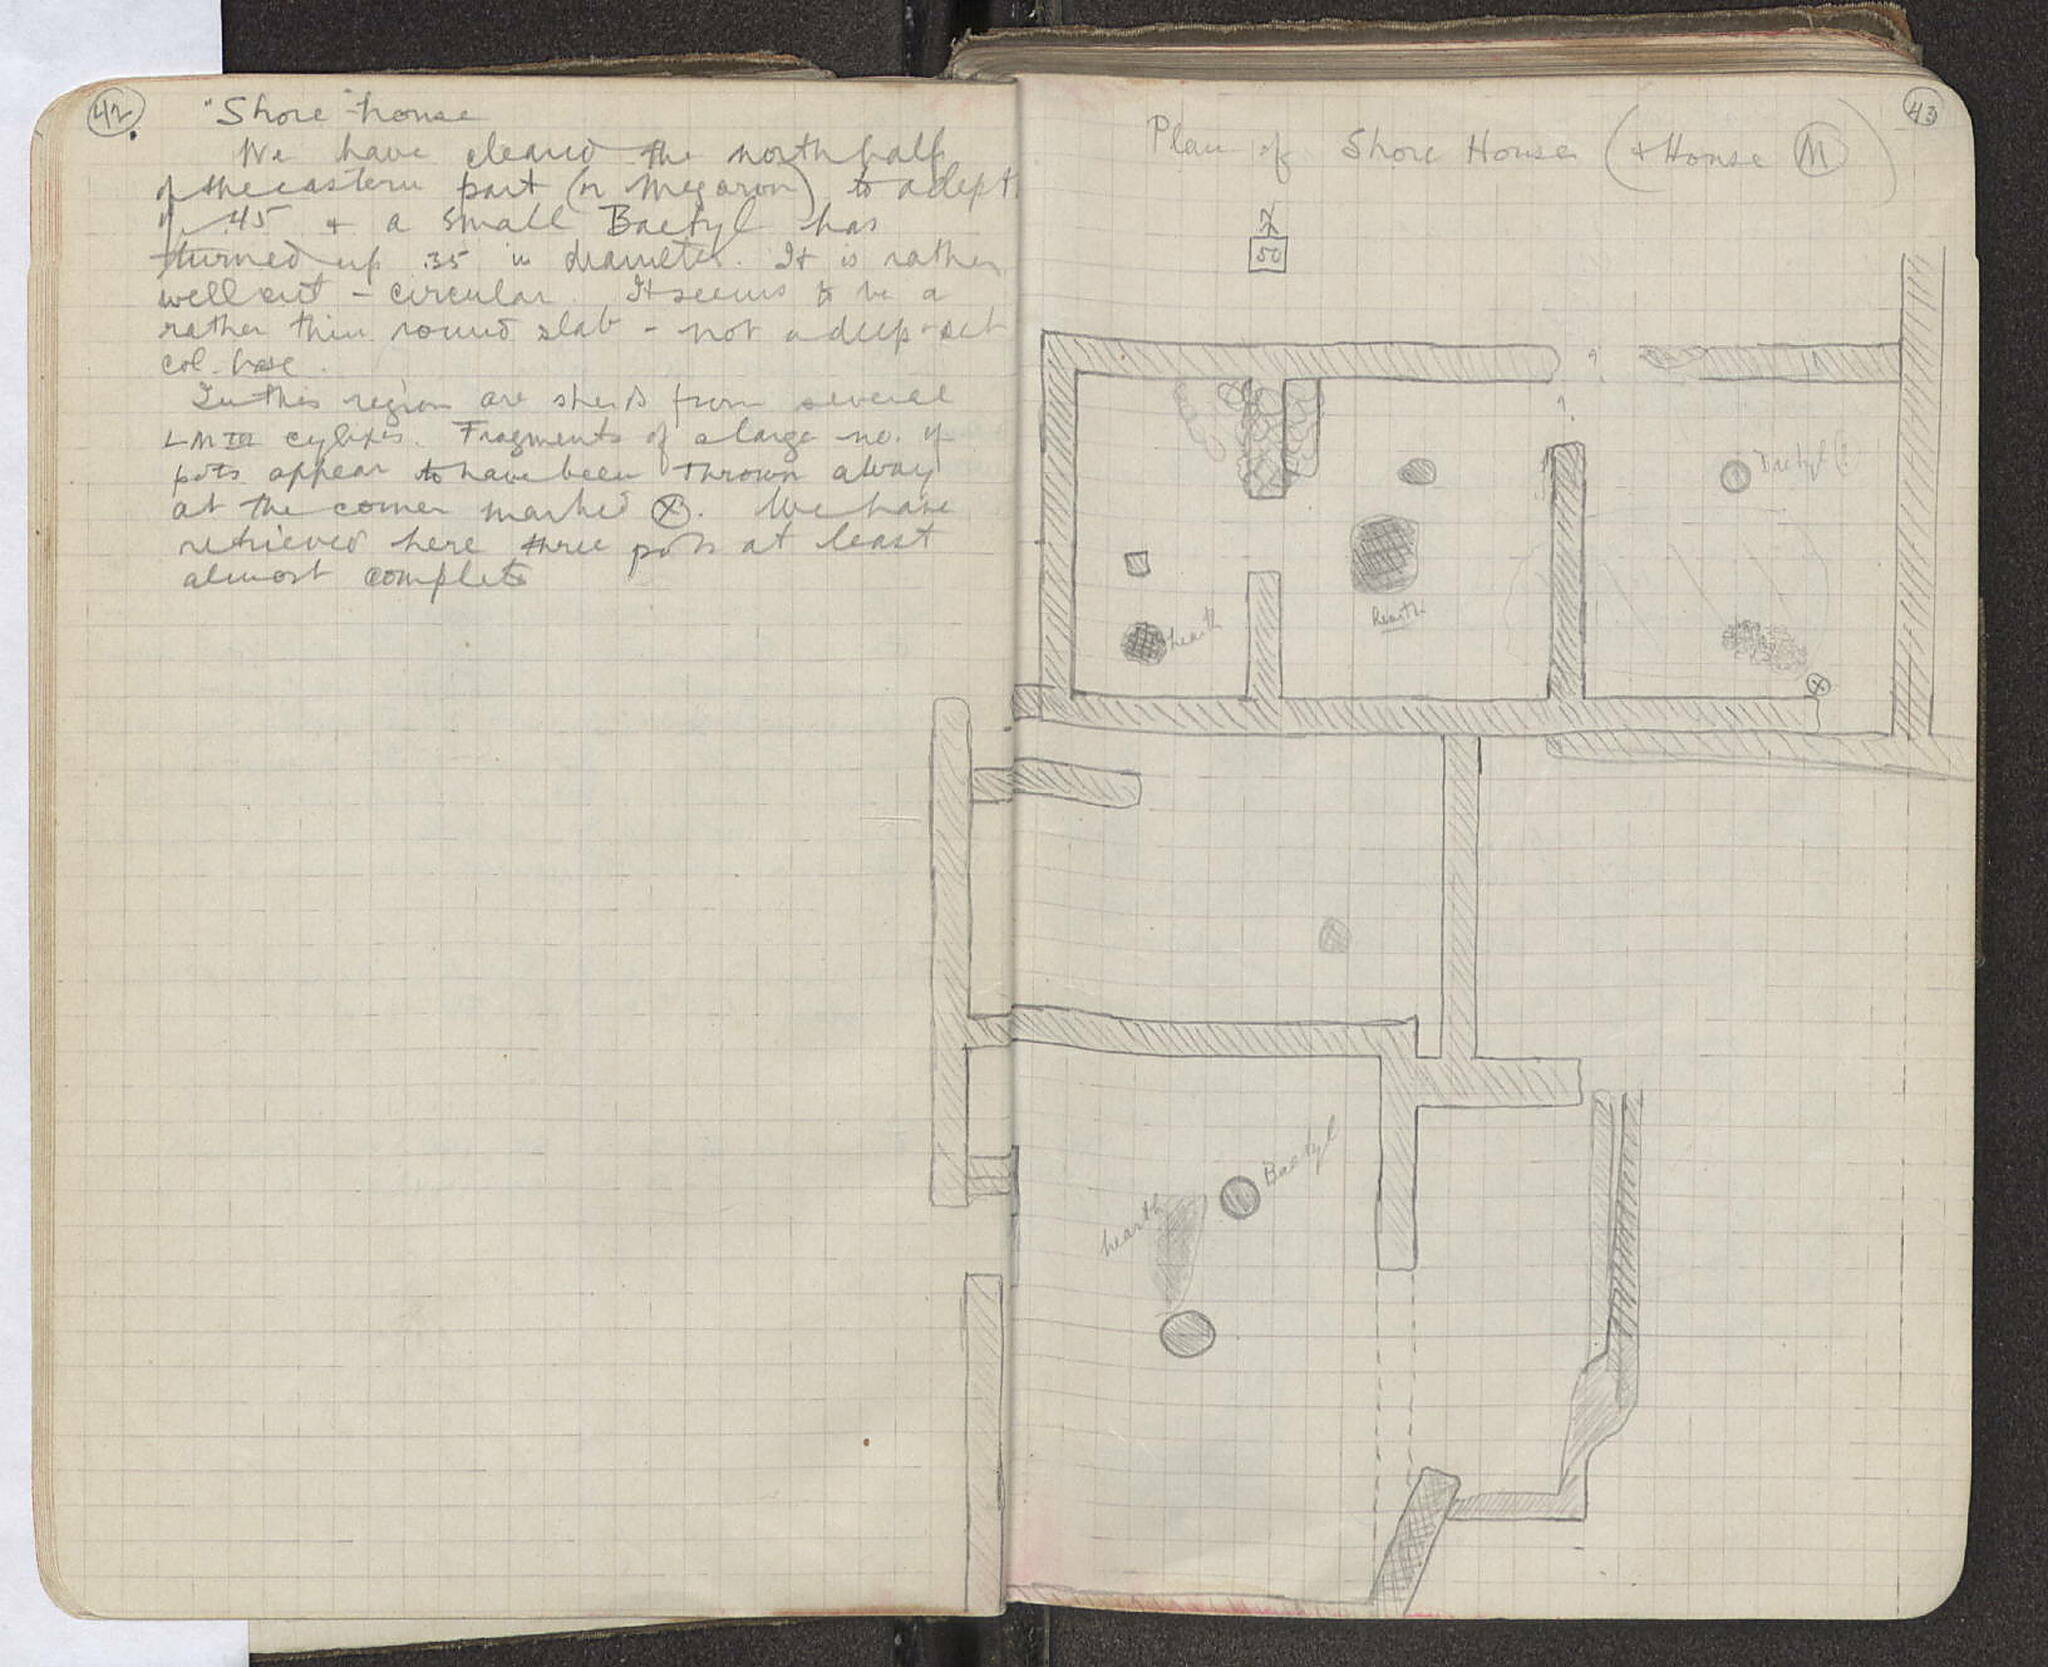 42
"Shore" house
We have cleared the north half
of the eastern part (or Megaron) to a depth
of .45 & a small Baetyl has
turned up .35 in diameter. It is rather
well cut - circular. It seems to be a
rather thin round slab - not a deep-set
col. base.
In this region are sherds from several
LM III cylixes. Fragments of a large no. of
pots appear to have been thrown away
at the corner marked ⊗. We have
retrieved here three pots at least
almost complete
43
Plan of Shore House (& House M)
50
?
?
Baetyl (?)
hearth
hearth
⊗
Baetyl
hearth